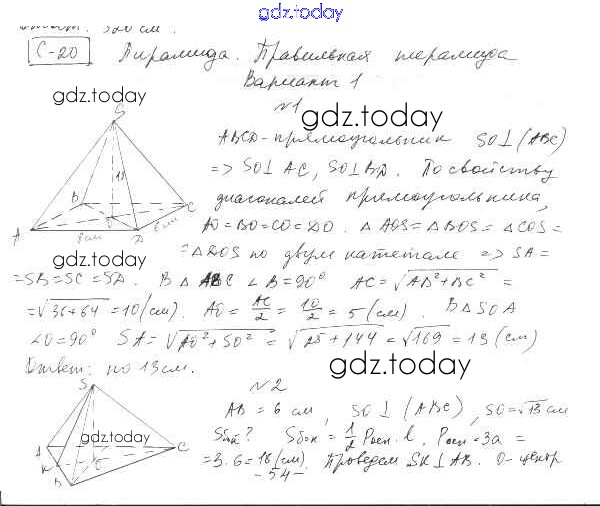 gdz.today
С-20 Пирамида. Правильная пирамида
Вариант 1
gdz.today
№1
gdz.today
ABCD-прямоугольник SO⊥(ABC)
=> SO⊥AC, SO⊥BD. По свойству
диагоналей прямоугольника,
AO=BO=CO=DO. △AOS=△BOS=△COS=
=△DOS по двум катетам => SA=
=SB=SC=SD. В △ABC ∠B=90° AC=√AB²+BC² =
=√36+64=10(см). AO=AC/2=10/2=5(см). В △SOA
∠O=90° SA=√AO²+SO²=√25+144=√169=13(см)
Ответ: по 13см.
gdz.today
S
13
B
C
A
D
8см
6см
O
№2
AB=6 см, SO⊥(ABC), SO=√13 см
Sбок? Sбок=1/2 Pосн·l. Pосн=3a=
=3·6=18(см). Проведем SK⊥AB. O-центр
-54-
S
gdz.today
A
K
B
C
O